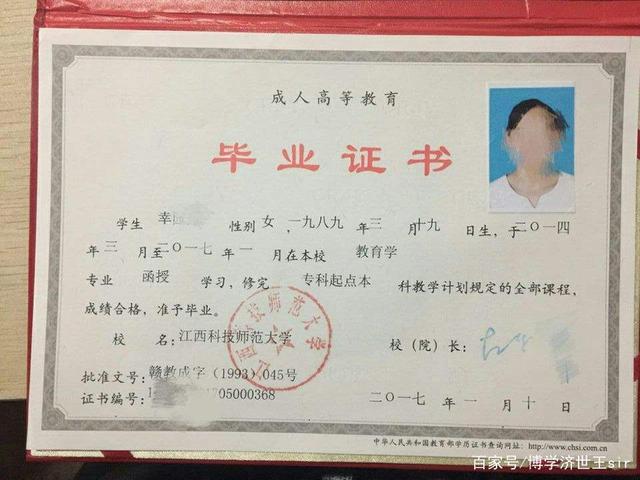 成人高等教育
毕业证书
学生 幸 性别 女，一九八九 年 三 月 十九 日生，于 二〇一四
年 三 月至 二〇一七 年 一 月在本校 教育学
专业 函授 学习，修完 专科起点本 科教学计划规定的全部课程，
成绩合格，准予毕业。
校 名：江西科技师范大学
校（院）长：
江西科技师范大学
批准文号：赣教成字（1993）045号
证书编号：1 705000368
二〇一七 年 一 月 十 日
中华人民共和国教育部学历证书查询网址：http://www.chsi.com.cn
百家号/博学济世王sir